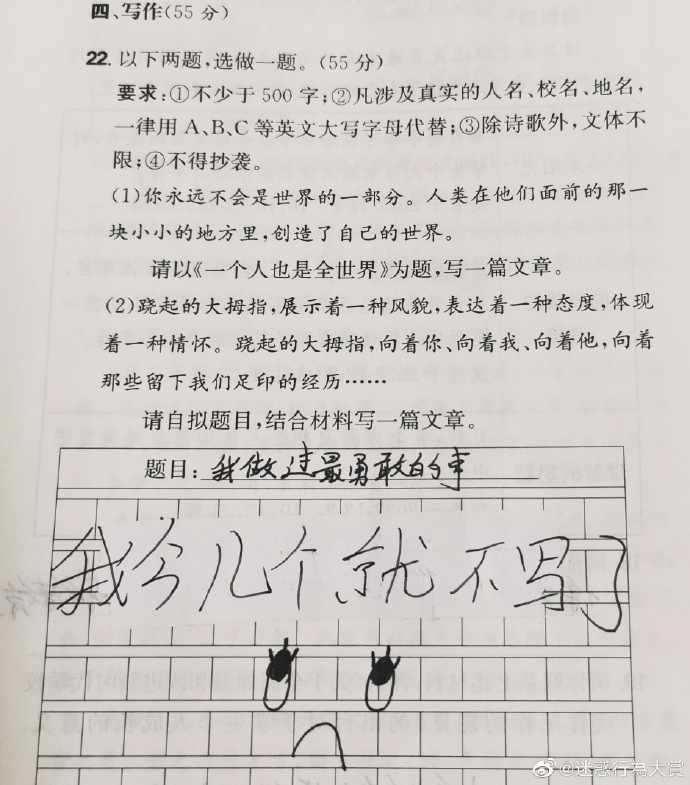 四、写作(55 分)
22. 以下两题,选做一题。(55 分)
要求:①不少于 500 字;②凡涉及真实的人名、校名、地名,
一律用 A、B、C 等英文大写字母代替;③除诗歌外,文体不
限;④不得抄袭。
(1)你永远不会是世界的一部分。人类在他们面前的那一
块小小的地方里,创造了自己的世界。
请以《一个人也是全世界》为题,写一篇文章。
(2)跷起的大拇指,展示着一种风貌,表达着一种态度,体现
着一种情怀。跷起的大拇指,向着你、向着我、向着他,向着
那些留下我们足印的经历……
请自拟题目,结合材料写一篇文章。
题目:我做过最勇敢的事
我今几个就不写了
@迷惑行為大赏